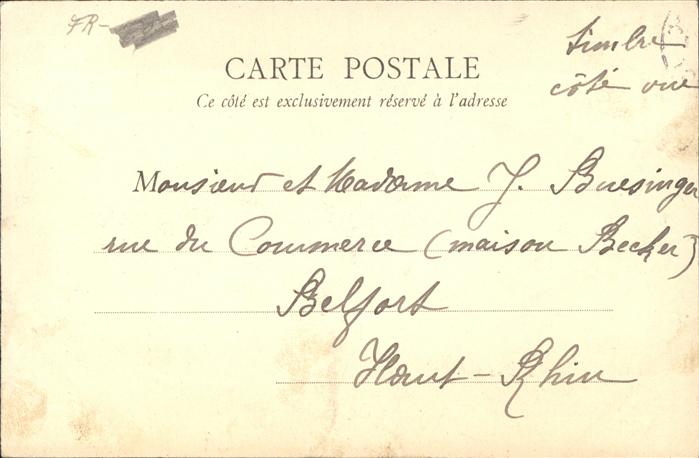 FR-
timbre
côté vue
CARTE POSTALE
Ce côté est exclusivement réservé à l'adresse
Monsieur et Madame J. Buesinger
rue du Commerce (maison Becker)
Belfort
Haut-Rhin